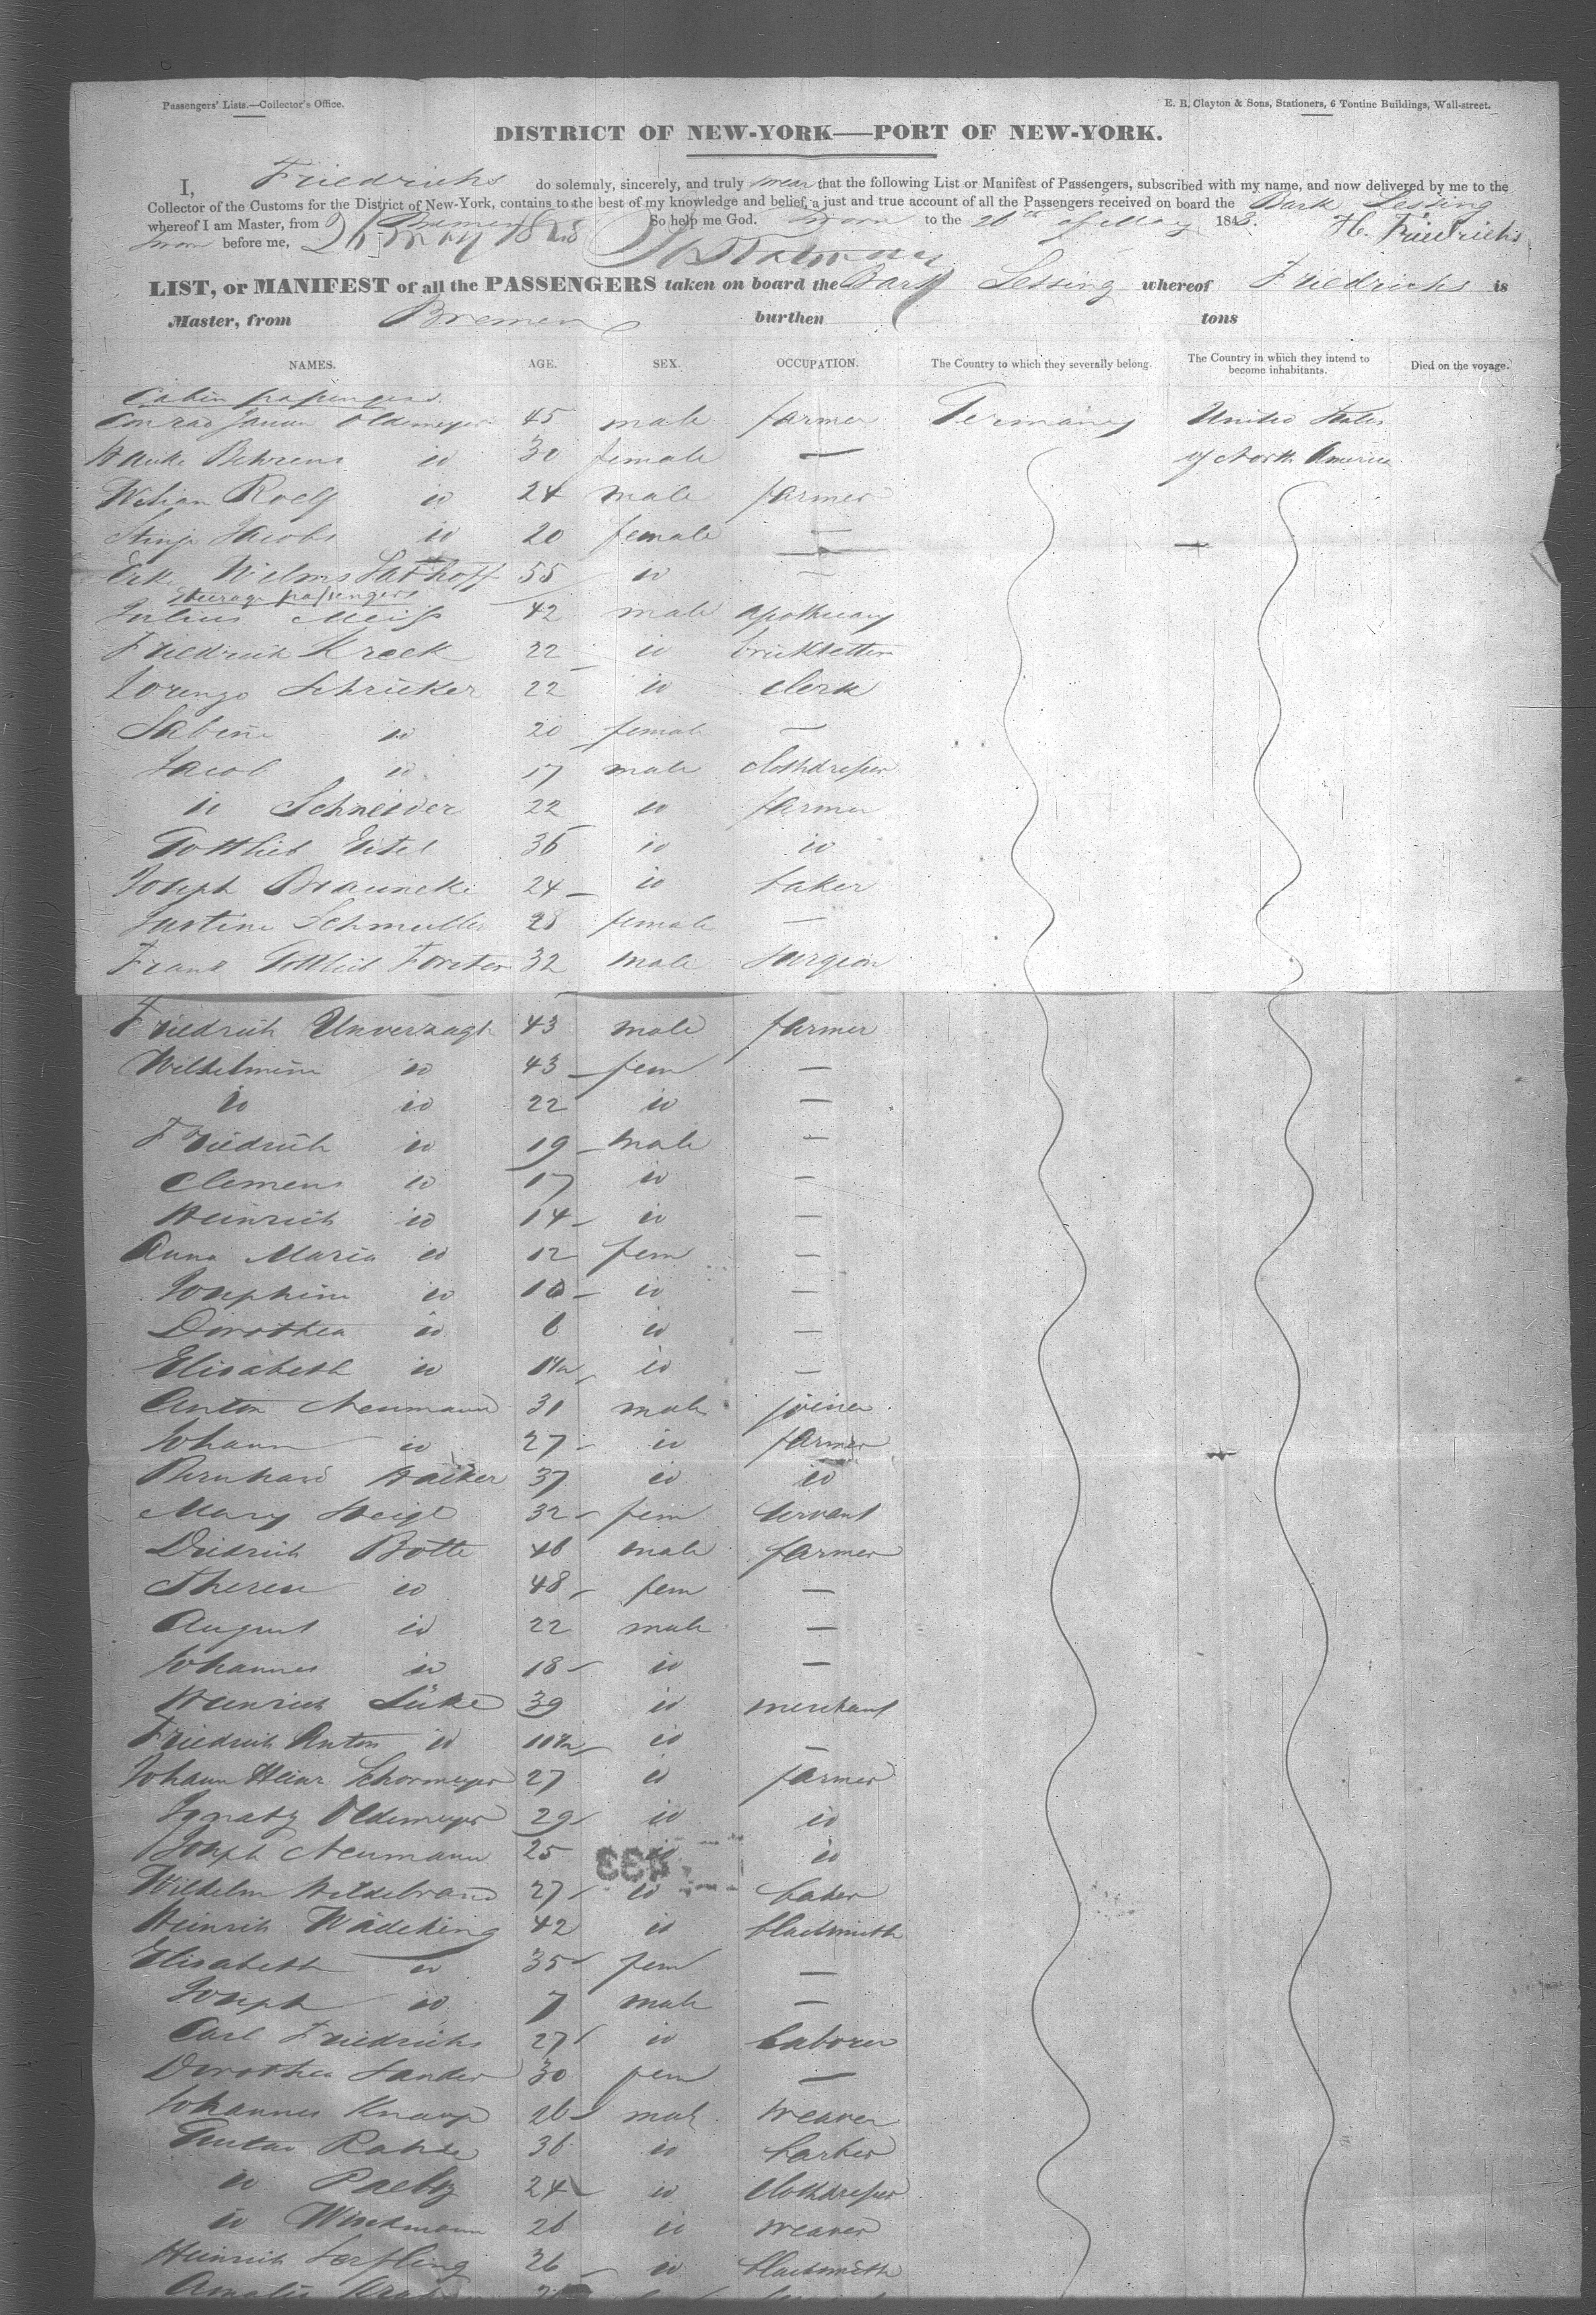 Passengers' Lists.—Collector's Office. E. B. Clayton & Sons, Stationers, 6 Tontine Buildings, Wall-street.
DISTRICT OF NEW-YORK—PORT OF NEW-YORK.
I, Friedrichs do solemnly, sincerely, and truly swear that the following List or Manifest of Passengers, subscribed with my name, and now delivered by me to the
Collector of the Customs for the District of New-York, contains to the best of my knowledge and belief, a just and true account of all the Passengers received on board the Bark Lessing
whereof I am Master, from Bremen So help me God. Sworn to the 26th of May 1848. H. Friedrichs
Sworn before me, 26 May 1848
LIST, or MANIFEST of all the PASSENGERS taken on board the Bark Lessing whereof Friedrichs is
Master, from Bremen burthen tons
NAMES. AGE. SEX. OCCUPATION. The Country to which they severally belong. The Country in which they intend to become inhabitants. Died on the voyage.
Cabin passengers.
Conrad Oldemeyer 45 male farmer Germany United States
Behrens do 30 female — of North America
Roelf do 24 male farmer
Jacobs do 20 female —
Wilms 55 do —
Steerage passengers
Julius Meiss 42 male apothecary
Friedrich Kreek 22 do bricksetter
Lorenzo Schricker 22 do clerk
Sabine do 20 female —
Jacob do 17 male clothdresser
do Schneider 22 do farmer
Gottlieb 36 do do
Joseph Brauncke 24 do baker
Justine Schmuller 28 female —
Franz Gottlieb Forster 32 male surgeon
Friedrich Unverzagt 43 male farmer
Wilhelmine do 43 fem —
do do 22 do —
Friedrich do 19 male —
Clemens do 17 do —
Heinrich do 14 do —
Anna Maria do 12 fem —
Josephine do 10 do —
Dorothea do 6 do —
Elisabeth do do —
Anton Neumann 31 male joiner
Johann do 27 do farmer
Bernhard Hacker 37 do do
Mary Heigl 32 fem servant
Diedrich Botte 46 male farmer
Therese do 48 fem —
August do 22 male —
Johannes do 18 do —
Heinrich Lüke 39 do merchant
Friedrich Anton do do —
Johann Heinr Schormeyer 27 do farmer
Ignatz Oldemeyer 29 do do
Joseph Neumann 25 do do
Wilhelm Hildebrand 27 do baker
Heinrich Wädeking 42 do blacksmith
Elisabeth do 35 fem —
Joseph do 7 male —
Carl Friedrichs 27 do laborer
Dorothea Sander 30 fem —
Johannes Knaup 26 male weaver
Gustav Rahde 36 do barber
do 24 do clothdresser
do Winckmann 26 do weaver
Heinrich 26 do blacksmith